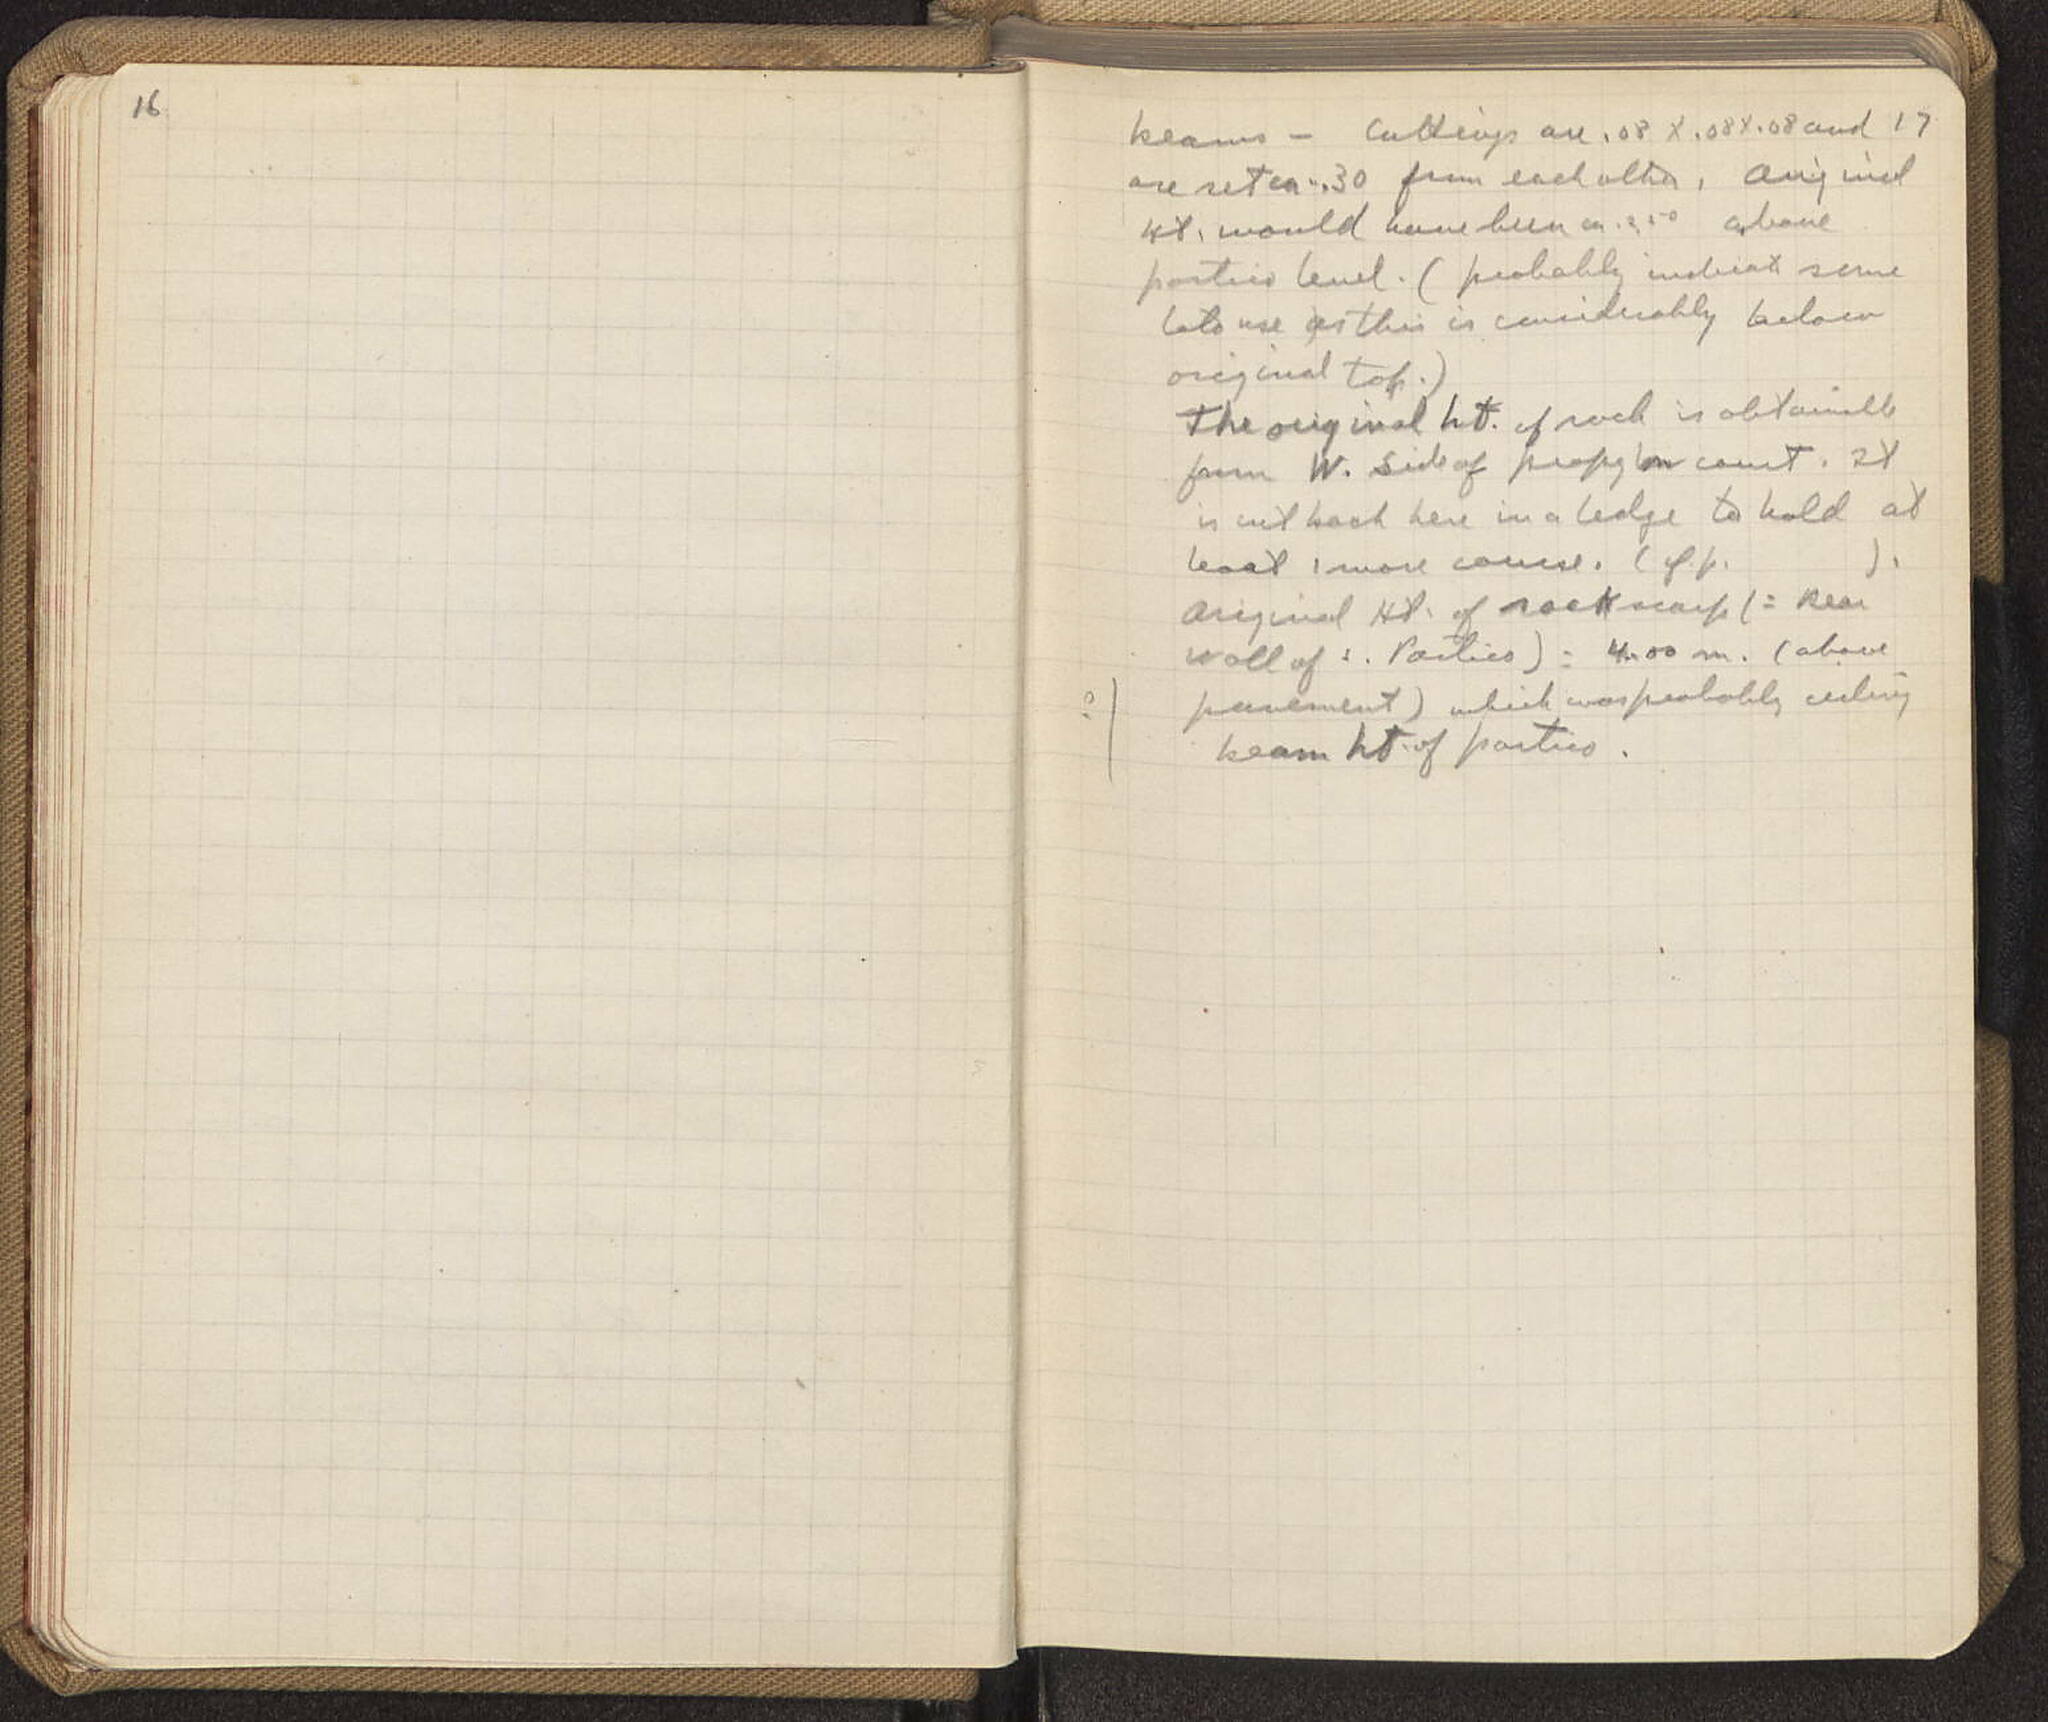 16
17
beams – Cuttings are .08 X .08 X .08 and
are set ca. .30 from each other. Original
Ht. would have been ca. above
portico level. (probably indicate some
late use as this is considerably below
original top.)
The original ht. of rock is obtainable
from W. side of propylon court. It
is cut back here in a ledge to hold at
least 1 more course. (cf. p. ).
Original Ht. of rock scarp (= Rear
wall of S. Portico) = 4.00 m. (above
pavement) which was probably ceiling
? beam ht. of portico.